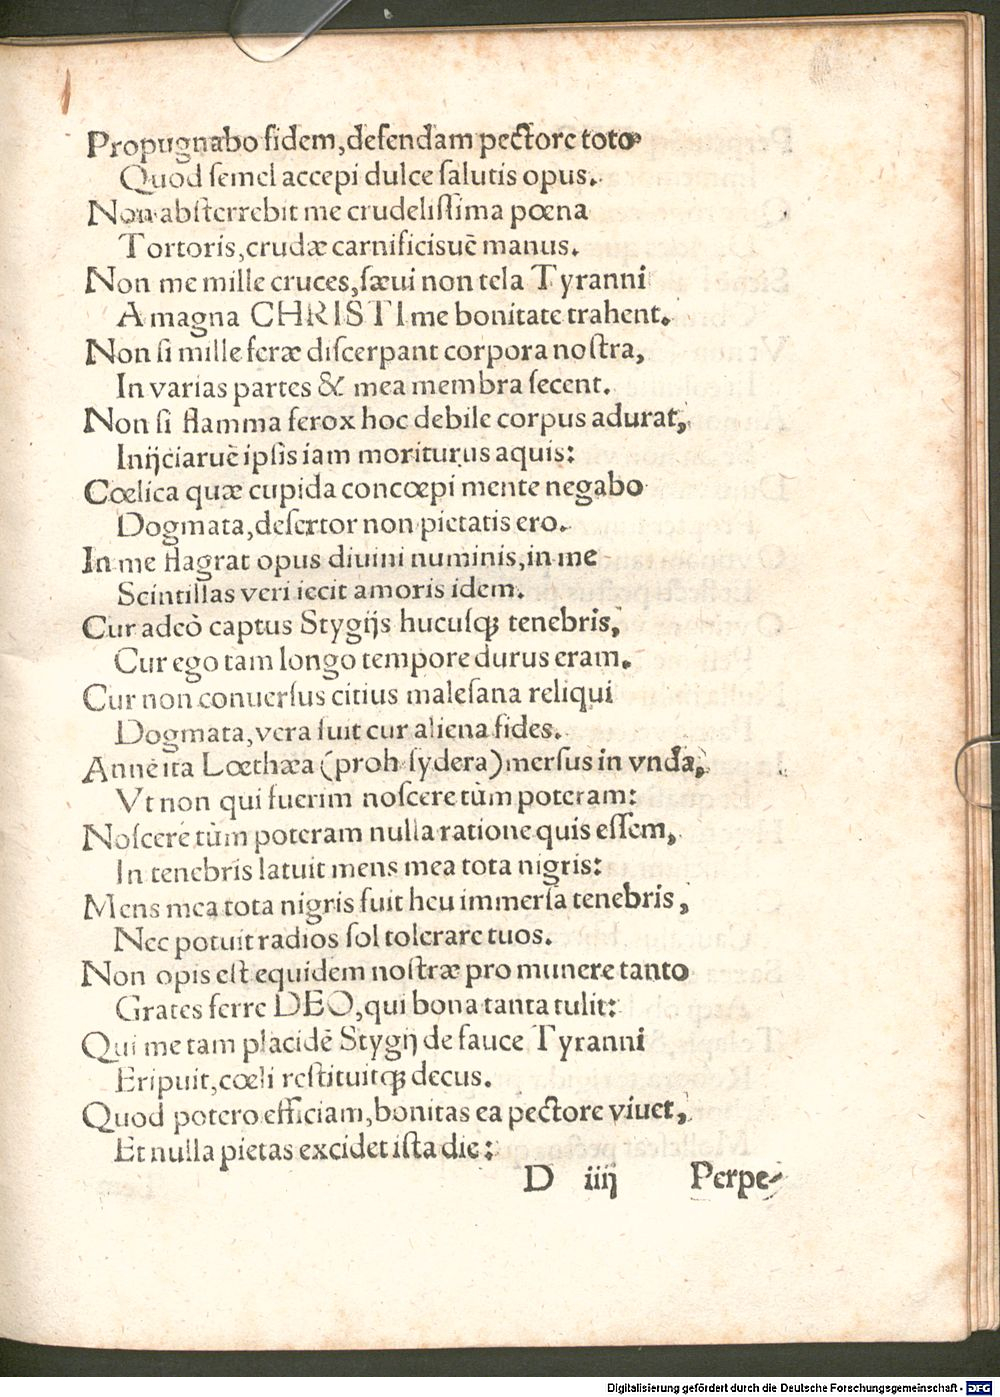 Propugnabo fidem,defendam pectore toto
Quod ſemel accepi dulce ſalutis opus.
Non abſterrebit me crudeliſſima pœna
Tortoris,crudæ carnificisuē manus.
Non me mille cruces,ſæui non tela Tyranni
A magna CHRISTI me bonitate trahent.
Non ſi mille feræ diſcerpant corpora noſtra,
In varias partes & mea membra ſecent.
Non ſi flamma ferox hoc debile corpus adurat,
Inijciaruē ipſis iam moriturus aquis:
Cœlica quæ cupida concœpi mente negabo
Dogmata,deſertor non pietatis ero.
In me flagrat opus diuini numinis,in me
Scintillas veri iecit amoris idem.
Cur adeò captus Stygijs hucuſqꝫ tenebris,
Cur ego tam longo tempore durus eram.
Cur non conuerſus citius maleſana reliqui
Dogmata,vera fuit cur aliena fides.
Annē ita Lœthæa (proh ſydera) merſus in vnda,
Vt non qui fuerim noſcere tùm poteram:
Noſcere tùm poteram nulla ratione quis eſſem,
In tenebris latuit mens mea tota nigris:
Mens mea tota nigris fuit heu immerſa tenebris,
Nec potuit radios ſol tolerare tuos.
Non opis eſt equidem noſtræ pro munere tanto
Grates ferre DEO,qui bona tanta tulit:
Qui me tam placidē Stygij de fauce Tyranni
Eripuit,cœli reſtituitqꝫ decus.
Quod potero efficiam,bonitas ea pectore viuet,
Et nulla pietas excidet iſta die:
D iiij Perpe-
Digitalisierung gefördert durch die Deutsche Forschungsgemeinschaft - DFG